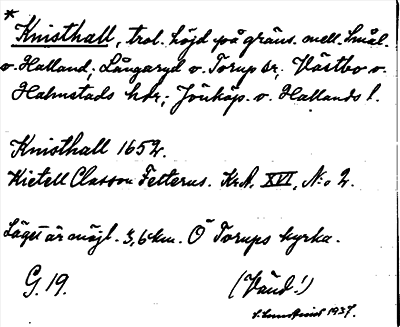 *
Knisthall, trol. höjd på gräns. mell. Smål.
o. Halland; Långaryd o. Torup sr, Västbo o.
Halmstads hdr; Jönköp. o. Hallands l.
Knisthall 1652.
Kietell Classon Felterus. Kr.A. XVI, N:o 2.
Läget är möjl. 3,6 km. Ö Torups kyrka.
G. 19. (Vänd!)
S. Lundkvist 1937.